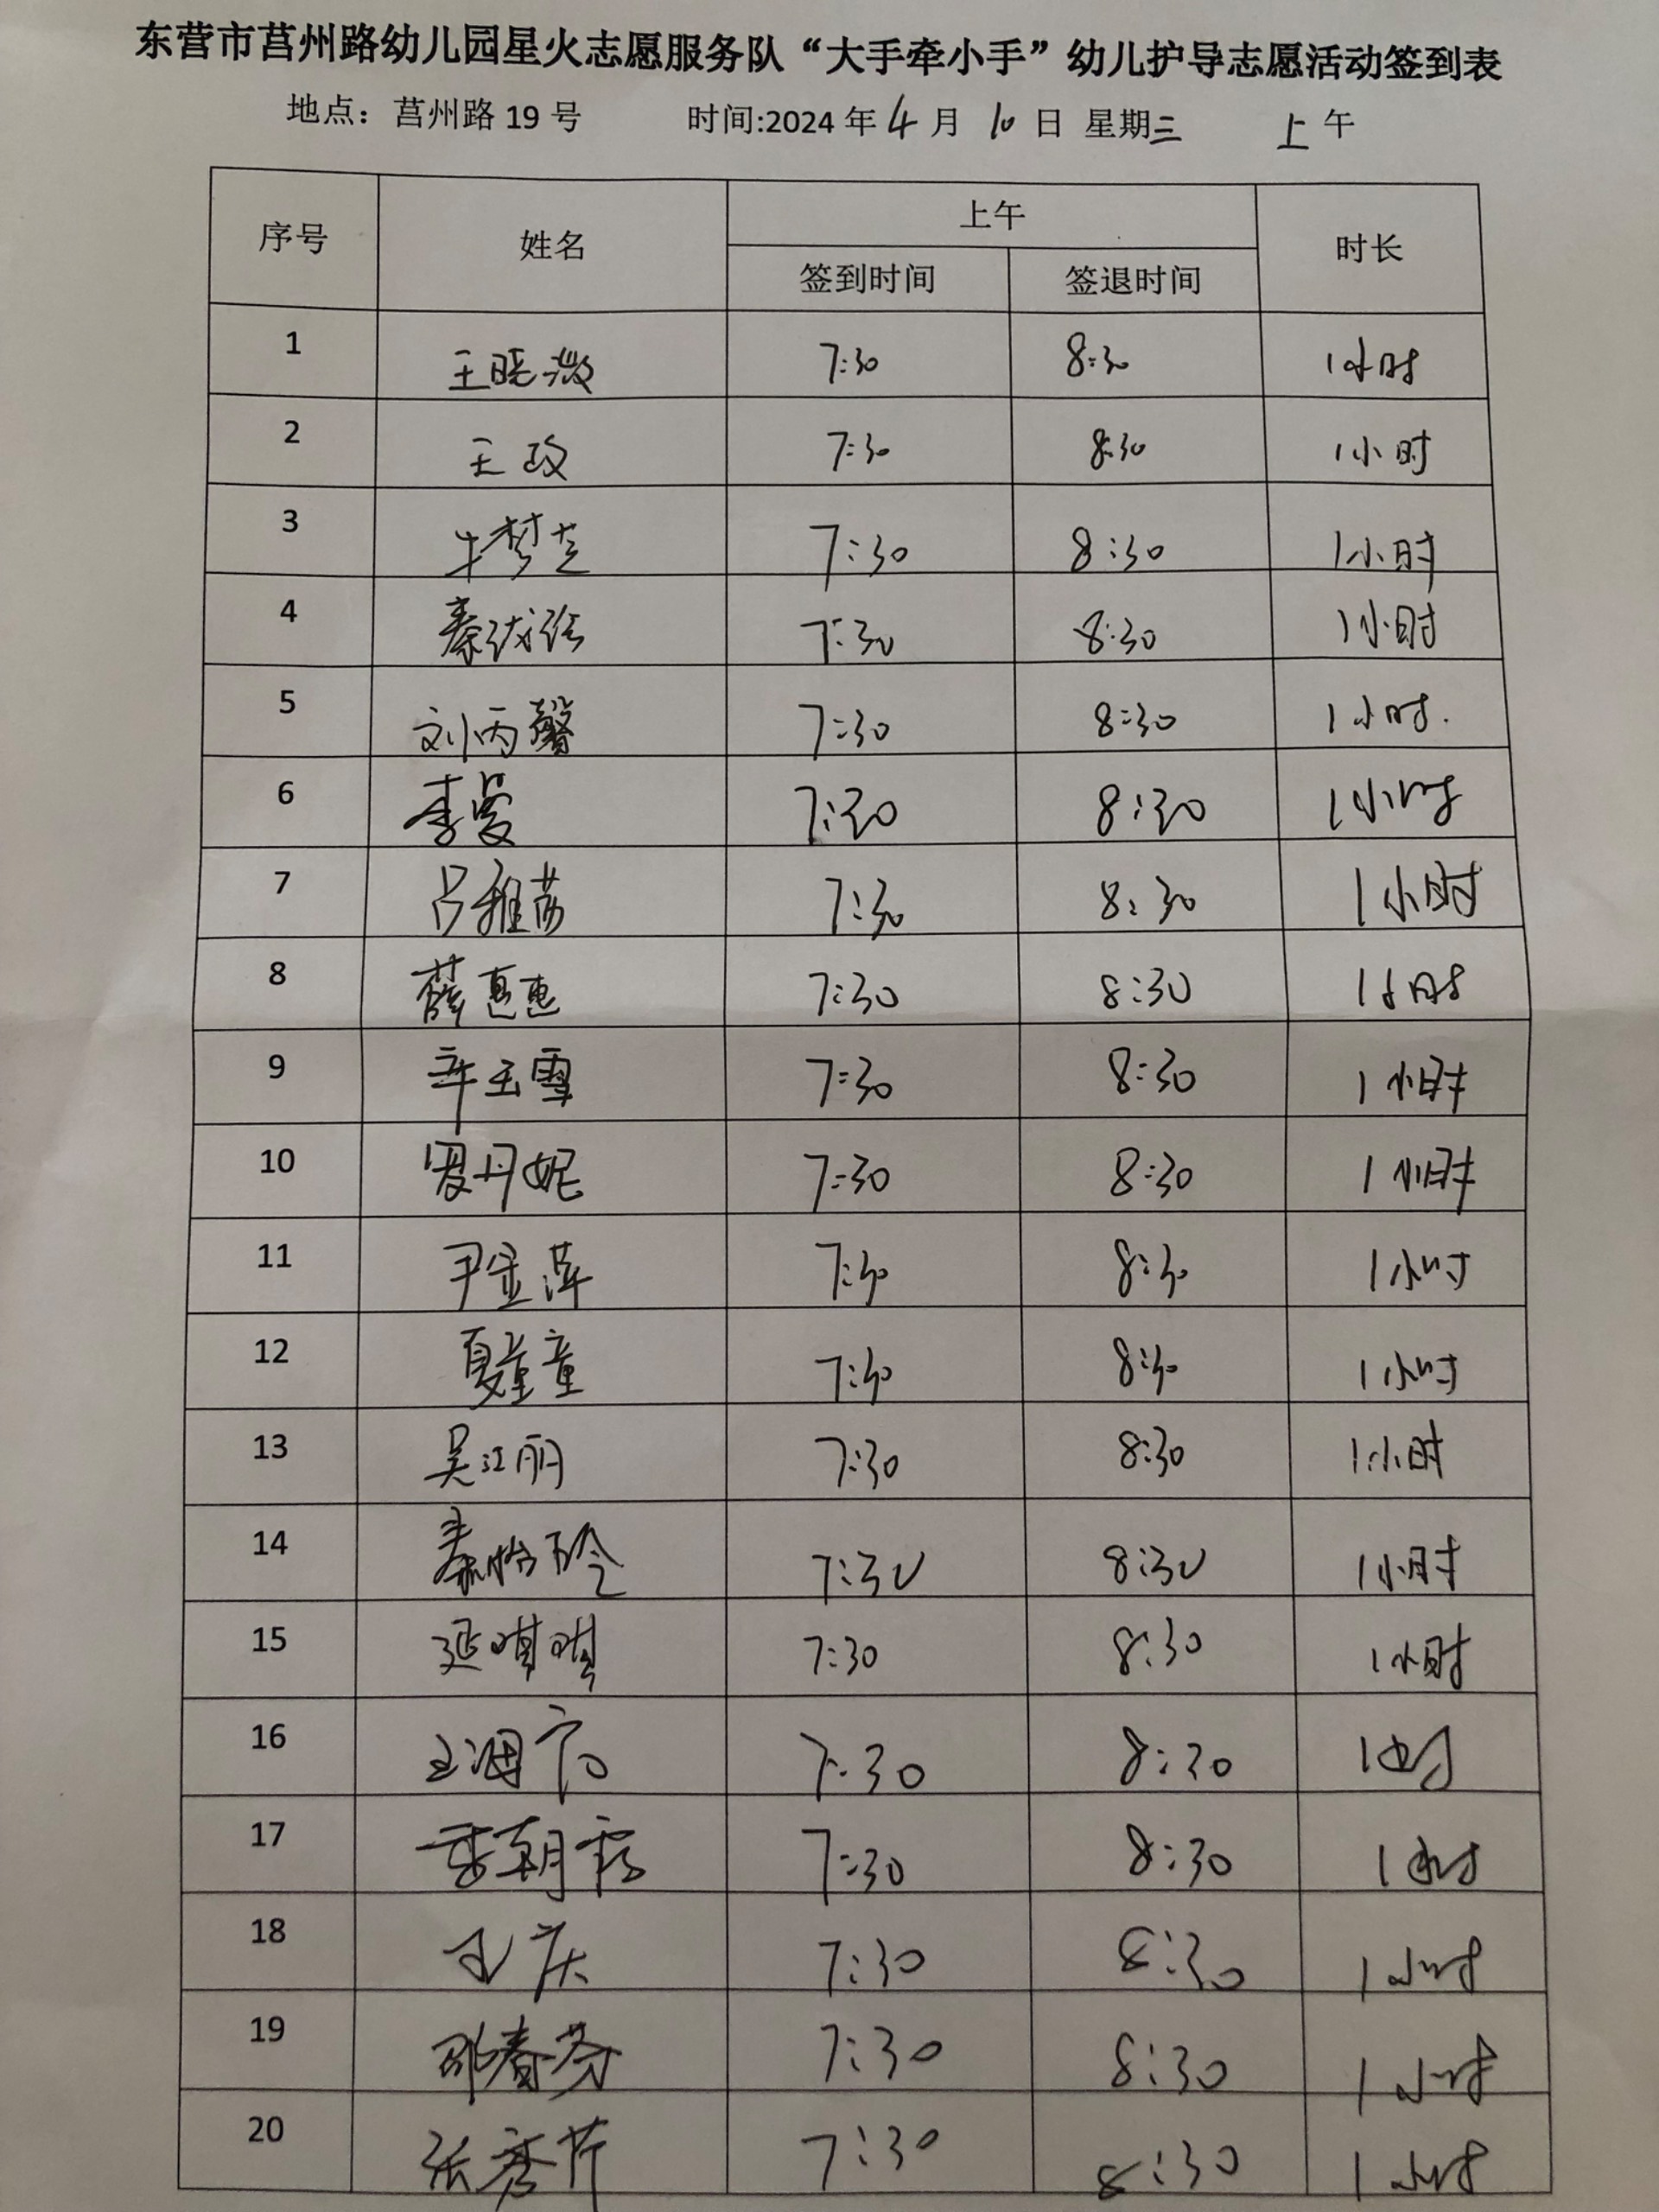 东营市莒州路幼儿园星火志愿服务队“大手牵小手”幼儿护导志愿活动签到表
地点：莒州路 19 号 时间:2024 年 4 月 10 日 星期三 上午
序号 姓名 上午 时长
签到时间 签退时间
1 王晓薇 7:30 8:30 1小时
2 王政 7:30 8:30 1小时
3 牛梦芝 7:30 8:30 1小时
4 秦 7:30 8:30 1小时
5 刘丙馨 7:30 8:30 1小时.
6 李曼 7:30 8:30 1小时
7 吕雅茹 7:30 8:30 1小时
8 薛惠惠 7:30 8:30 1小时
9 辛玉雪 7:30 8:30 1小时
10 罗丹妮 7:30 8:30 1小时
11 尹金萍 7:30 8:30 1小时
12 夏童童 7:30 8:30 1小时
13 吴江丽 7:30 8:30 1小时
14 秦怡玲 7:30 8:30 1小时
15 延琪琪 7:30 8:30 1小时
16 王 7:30 8:30 1小时
17 李朝霞 7:30 8:30 1小时
18 王庆 7:30 8:30 1小时
19 邵春芬 7:30 8:30 1小时
20 张秀芹 7:30 8:30 1小时